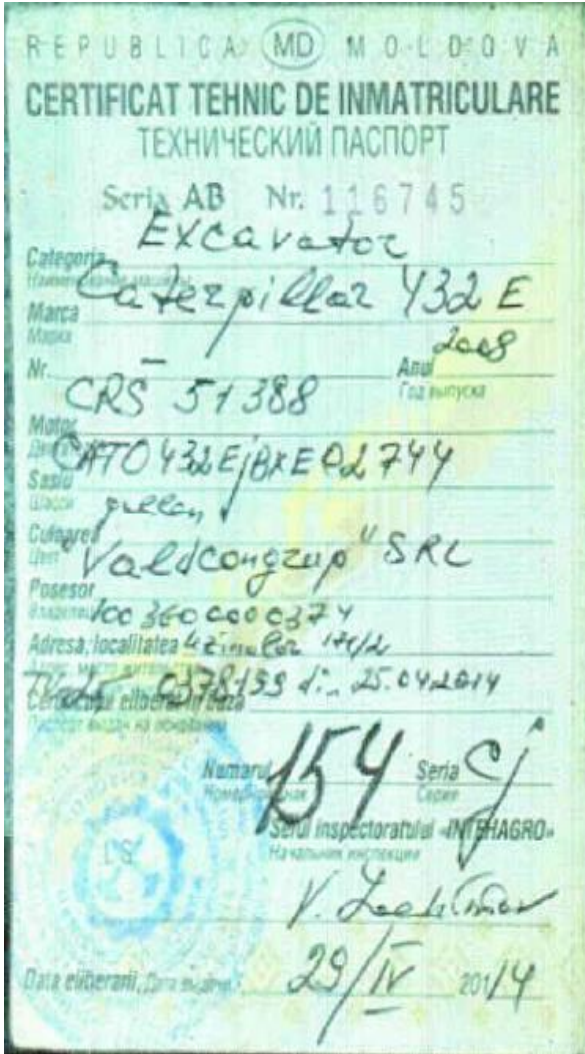 REPUBLICA MD MOLDOVA
CERTIFICAT TEHNIC DE INMATRICULARE
ТЕХНИЧЕСКИЙ ПАСПОРТ
Seria AB Nr. 116745
Excavator
Categoria
Наименование машины
Caterpillar 432 E
Marca
Марка
2008
Nr. — Anul
Год выпуска
CRS 51388
Motor
CAT0432EjBXE02744
Sasiu
Шасси
Culoarea
Цвет
"Valdcongrup" SRL
Posesor
Владелец
1003600000374
Adresa, localitatea Uzinelor
Адрес, место жительства
0378199 din 25.04.2014
Certificatul eliberat in baza
Паспорт выдан на основании
154 Cj
Numarul Seria
Серия
Seful inspectoratului «INTEHAGRO»
Начальник инспекции
LS
V.
29/IV 2014
Data eliberarii, Дата выдачи